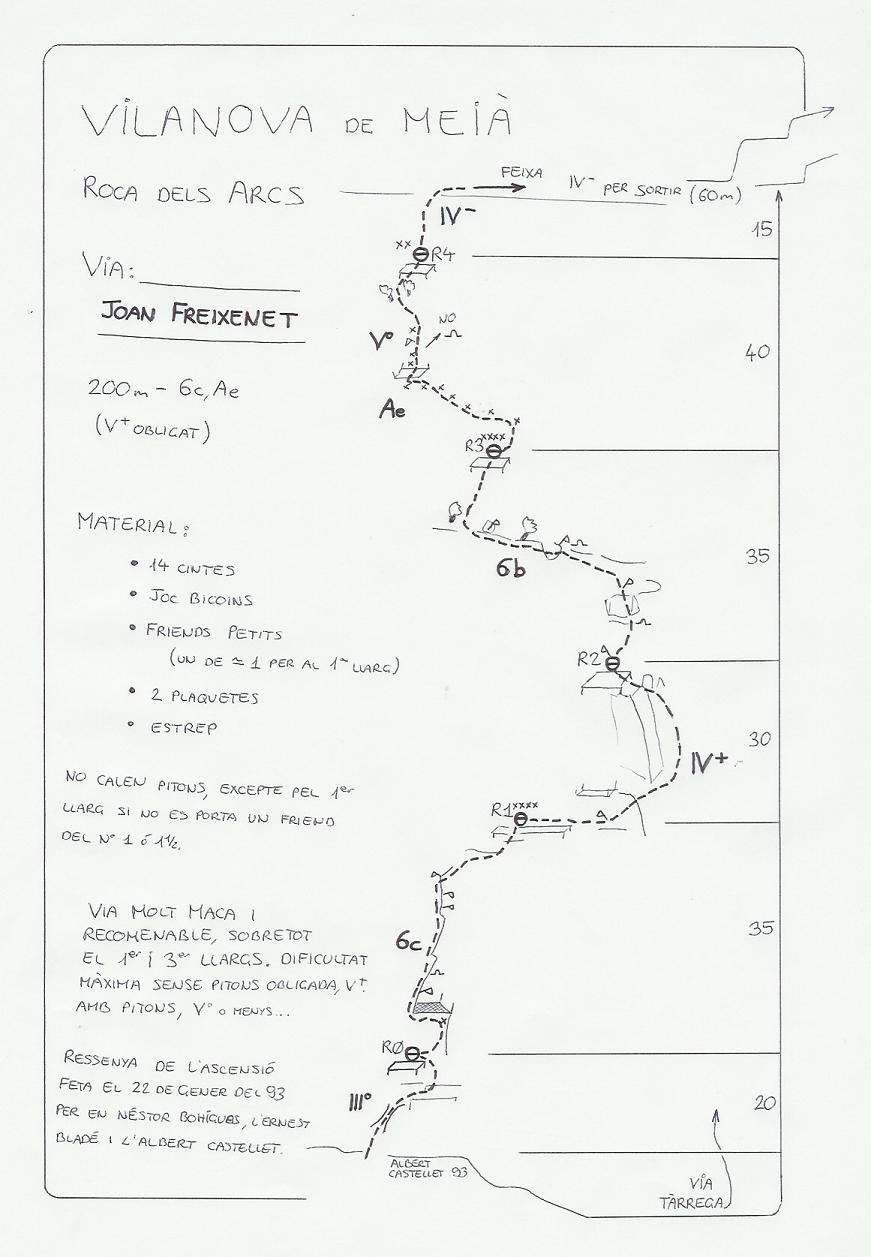 VILANOVA DE MEIÀ
ROCA DELS ARCS
VIA:
JOAN FREIXENET
200m - 6c, Ae
(V+ OBLIGAT)
MATERIAL:
• 14 CINTES
• JOC BICOINS
• FRIENDS PETITS
(UN DE ≃ 1 PER AL 1er LLARG)
• 2 PLAQUETES
• ESTREP
NO CALEN PITONS, EXCEPTE PEL 1er
LLARG SI NO ES PORTA UN FRIEND
DEL Nº 1 ó 1½.
VIA MOLT MACA I
RECOMENABLE, SOBRETOT
EL 1er i 3er LLARGS. DIFICULTAT
MÀXIMA SENSE PITONS OBLIGADA, V+.
AMB PITONS, Vº o MENYS...
RESSENYA DE L'ASCENSIÓ
FETA EL 22 DE GENER DEL 93
PER EN NÉSTOR BOHÍGUES, L'ERNEST
BLADÉ I L'ALBERT CASTELLET.
FEIXA
IV- PER SORTIR (60m)
IV-
15
XX
R4
NO
Vº
40
Ae
XXXX
R3
6b
35
R2
30
IV+
XXXX
R1
6c
35
RØ
IIIº
20
ALBERT
CASTELLET 93
VIA
TÀRREGA